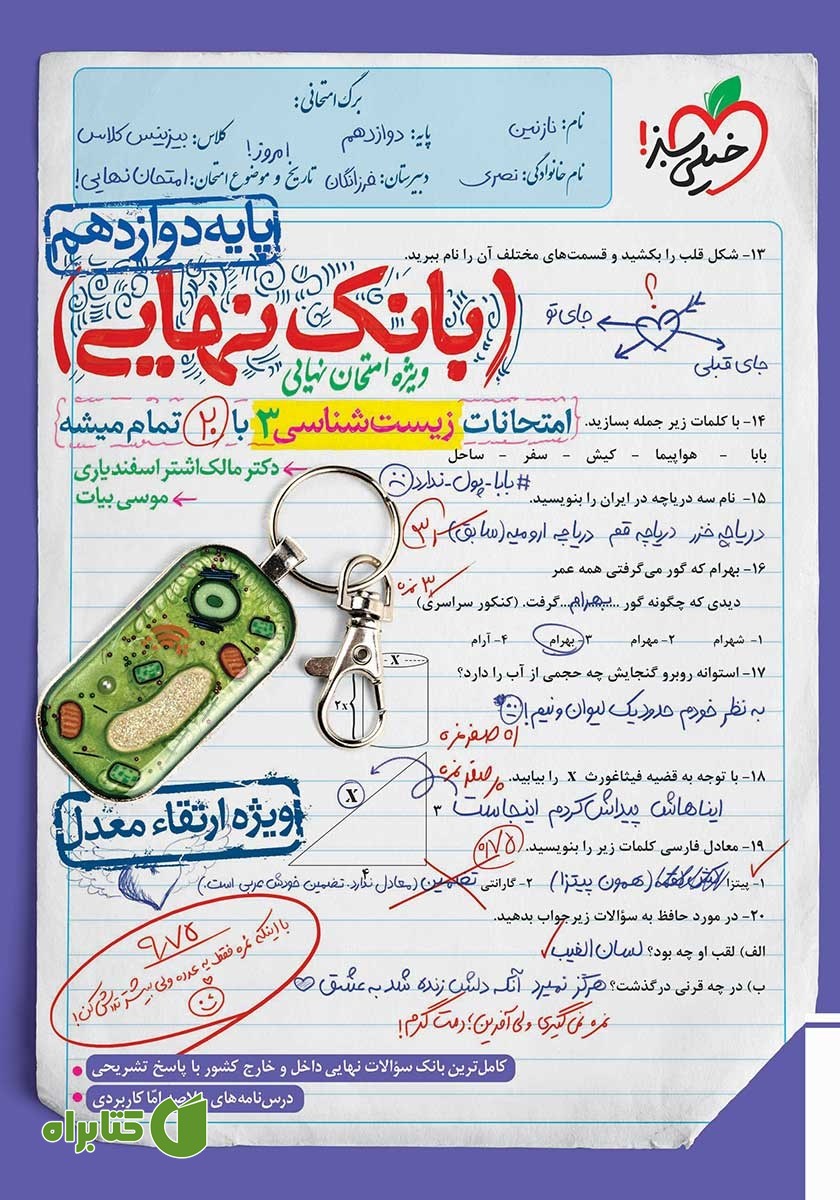 خیلی سبز!
برگ امتحانی:
نام: نازنین پایه: دوازدهم کلاس: بیزینس کلاس
نام خانوادگی: نصری دبیرستان: فرزانگان تاریخ و موضوع امتحان: امروز! امتحان نهایی!
پایه دوازدهم
۱۳- شکل قلب را بکشید و قسمت‌های مختلف آن را نام ببرید.
(بانک نهایی)
ویژه امتحان نهایی
؟
جای تو
جای قبلی
۱۴- با کلمات زیر جمله بسازید.
امتحانات زیست‌شناسی ۳ با ۲۰ تمام میشه
بابا - هواپیما - کیش - سفر - ساحل
#بابا-پول-ندارد
دکتر مالک‌اشتر اسفندیاری
موسی بیات
۱۵- نام سه دریاچه در ایران را بنویسید.
دریاچه خزر دریاچه قم دریاچه ارومیه (سابق)
۱۶- بهرام که گور می‌گرفتی همه عمر
۳ نمره
دیدی که چگونه گور ....بهرام....گرفت. (کنکور سراسری)
۱- شهرام ۲- مهرام ۳- بهرام ۴- آرام
۱۷- استوانه روبرو گنجایش چه حجمی از آب را دارد؟
X
۲x
به نظر خودم حدود یک لیوان و نیم!
صفر نمره
۱۸- با توجه به قضیه فیثاغورث X را بیابید.
صفر نمره
X
۳
۴
ایناهاش پیداش کردم اینجاست
ویژه ارتقاء معدل
۱۹- معادل فارسی کلمات زیر را بنویسید.
۰/۷۵
۱- پیتزا (همون پیتزا) ۲- گارانتی تضمین (معادل ندارد. تضمین خودش عربی است.)
۲۰- در مورد حافظ به سؤالات زیر جواب بدهید.
الف) لقب او چه بود؟ لسان الغیب
ب) در چه قرنی درگذشت؟ هرگز نمیرد آنکه دلش زنده شد به عشق
نمره نمی‌گیری ولی آفرین؛ دمت گرم!
۹/۷۵
با اینکه نمره فقط یه عدده ولی بیشتر تلاش کن!
کامل‌ترین بانک سؤالات نهایی داخل و خارج کشور با پاسخ تشریحی
درس‌نامه‌های خلاصه امّا کاربردی
کتابراه